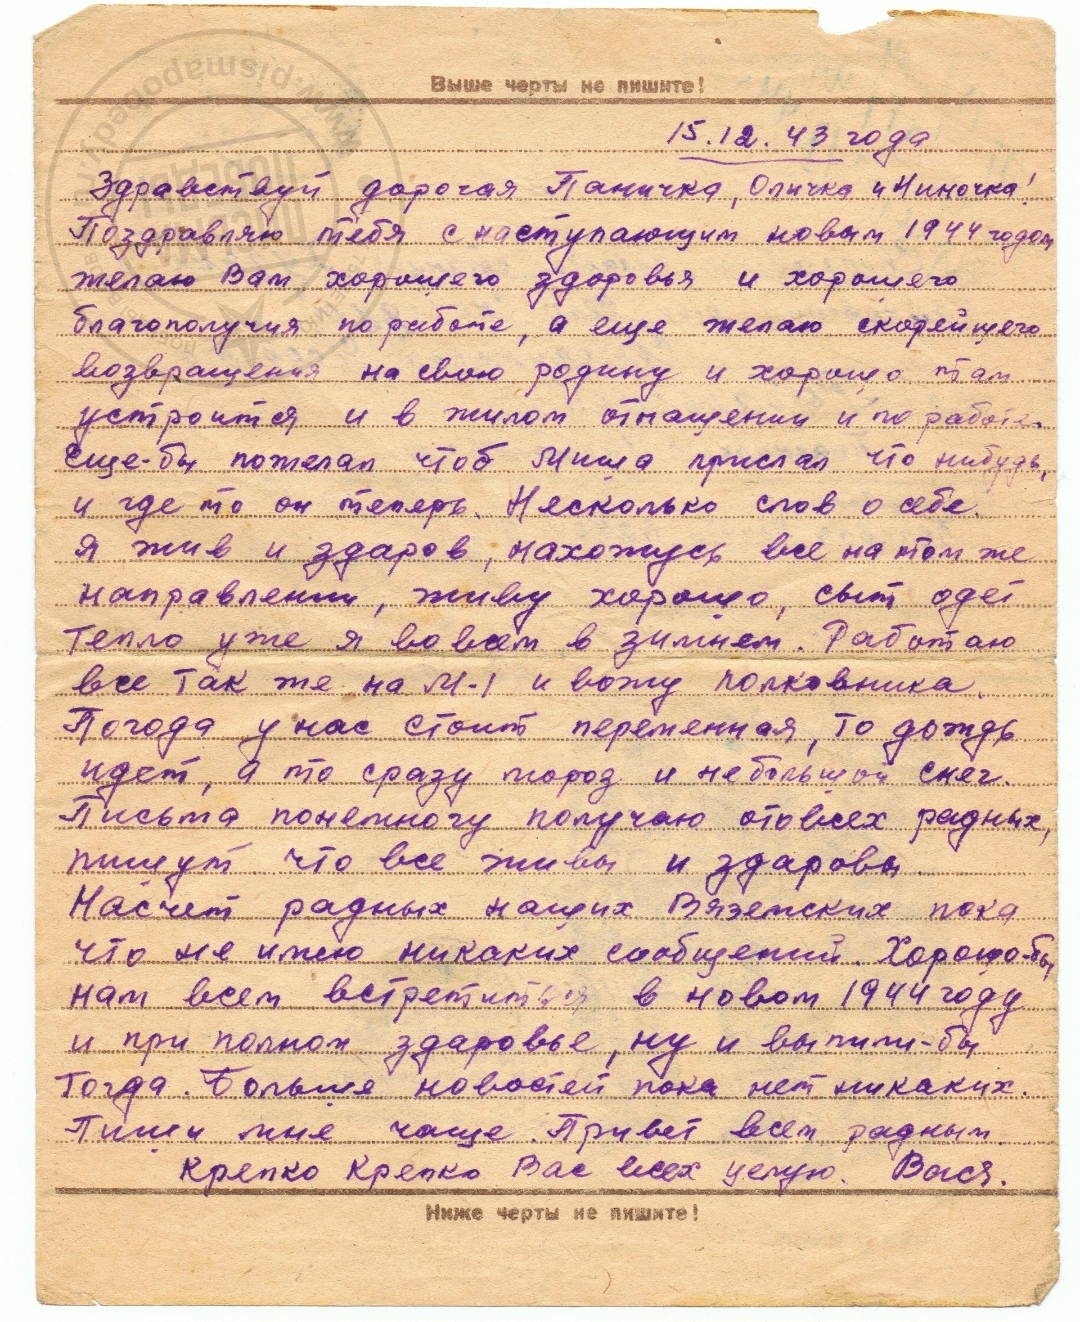 Выше черты не пишите!
15.12.43 года
Здравствуй дорогая Паничка, Оличка и Ниночка!
Поздравляю тебя с наступающим новым 1944 годом
желаю Вам хорошего здоровья и хорошего
благополучия по работе, а еще желаю скорейшего
возвращения на свою родину и хорошо там
устроится и в жилом отнащении и по работе.
Еще-бы пожелал чтоб Миша прислал что нибудь,
и где то он теперь. Несколько слов о себе.
Я жив и здаров, нахожусь все на том же
направлении, живу хорошо, сыт одет
тепло уже я во всем в зимнем. Работаю
все так же на М-1 и вожу полковника.
Погода у нас стоит переменная, то дождь
идет, а то сразу мороз и небольшой снег.
Письма понемногу получаю ото всех радных,
пишут что все живы и здаровы.
Насчет радных наших Вяземских пока
что не имею никаких сообщений. Хорошо-бы
нам всем встретиться в новом 1944 году
и при полном здаровье, ну и выпили-бы
тогда. Больше новостей пока нет никаких.
Пиши мне чаще. Привет всем радным.
Крепко Крепко Вас всех целую. Вася.
Ниже черты не пишите!
www.pismapobedy.ru
ПИСЬМА
ПОБЕДЫ